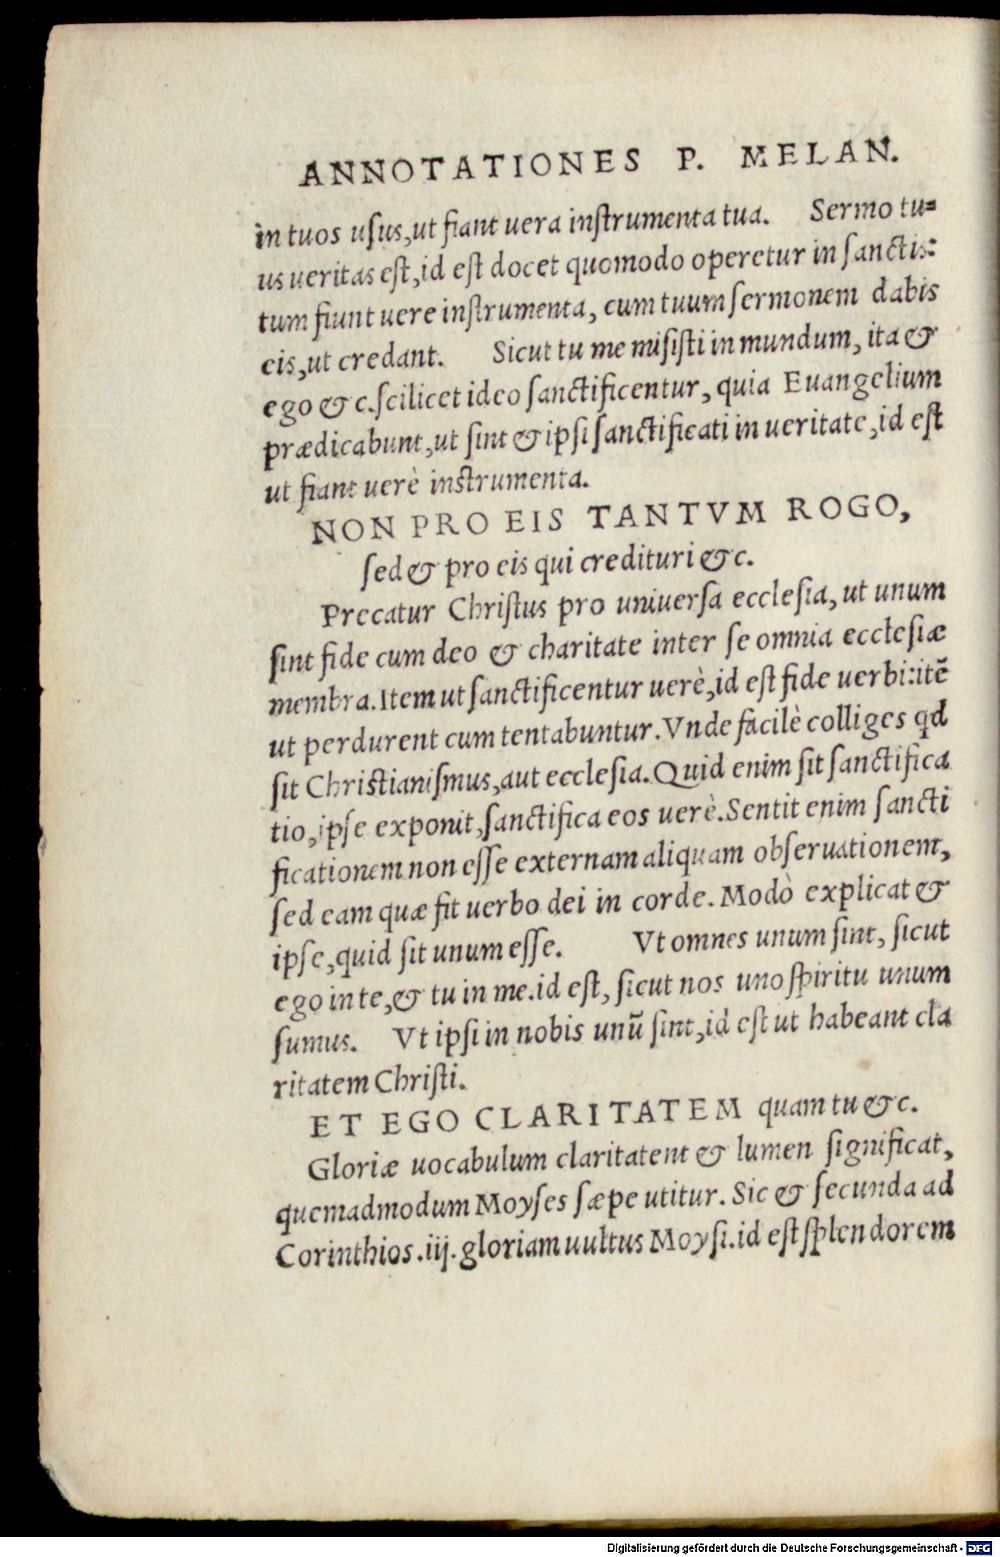 ANNOTATIONES P. MELAN.
in tuos usus, ut fiant uera instrumenta tua. Sermo tu=
us ueritas est, id est docet quomodo operetur in sanctis:
tum fiunt uere instrumenta, cum tuum sermonem dabis
eis, ut credant. Sicut tu me misisti in mundum, ita &
ego & c. scilicet ideo sanctificentur, quia Euangelium
prædicabunt, ut sint & ipsi sanctificati in ueritate, id est
ut fiant uerè instrumenta.
NON PRO EIS TANTVM ROGO,
sed & pro eis qui credituri &c.
Precatur Christus pro uniuersa ecclesia, ut unum
sint fide cum deo & charitate inter se omnia ecclesiæ
membra. Item ut sanctificentur uerè, id est fide uerbi: itẽ
ut perdurent cum tentabuntur. Vnde facilè colliges qd
sit Christianismus, aut ecclesia. Quid enim sit sanctifica
tio, ipse exponit, sanctifica eos uerè. Sentit enim sancti
ficationem non esse externam aliquam obseruationem,
sed eam quæ fit uerbo dei in corde. Modò explicat &
ipse, quid sit unum esse. Vt omnes unum sint, sicut
ego in te, & tu in me. id est, sicut nos uno spiritu unum
sumus. Vt ipsi in nobis unũ sint, id est ut habeant cla
ritatem Christi.
ET EGO CLARITATEM quam tu &c.
Gloriæ uocabulum claritatem & lumen significat,
quemadmodum Moyses sæpe utitur. Sic & secunda ad
Corinthios .iij. gloriam uultus Moysi. id est splendorem
Digitalisierung gefördert durch die Deutsche Forschungsgemeinschaft - DFG